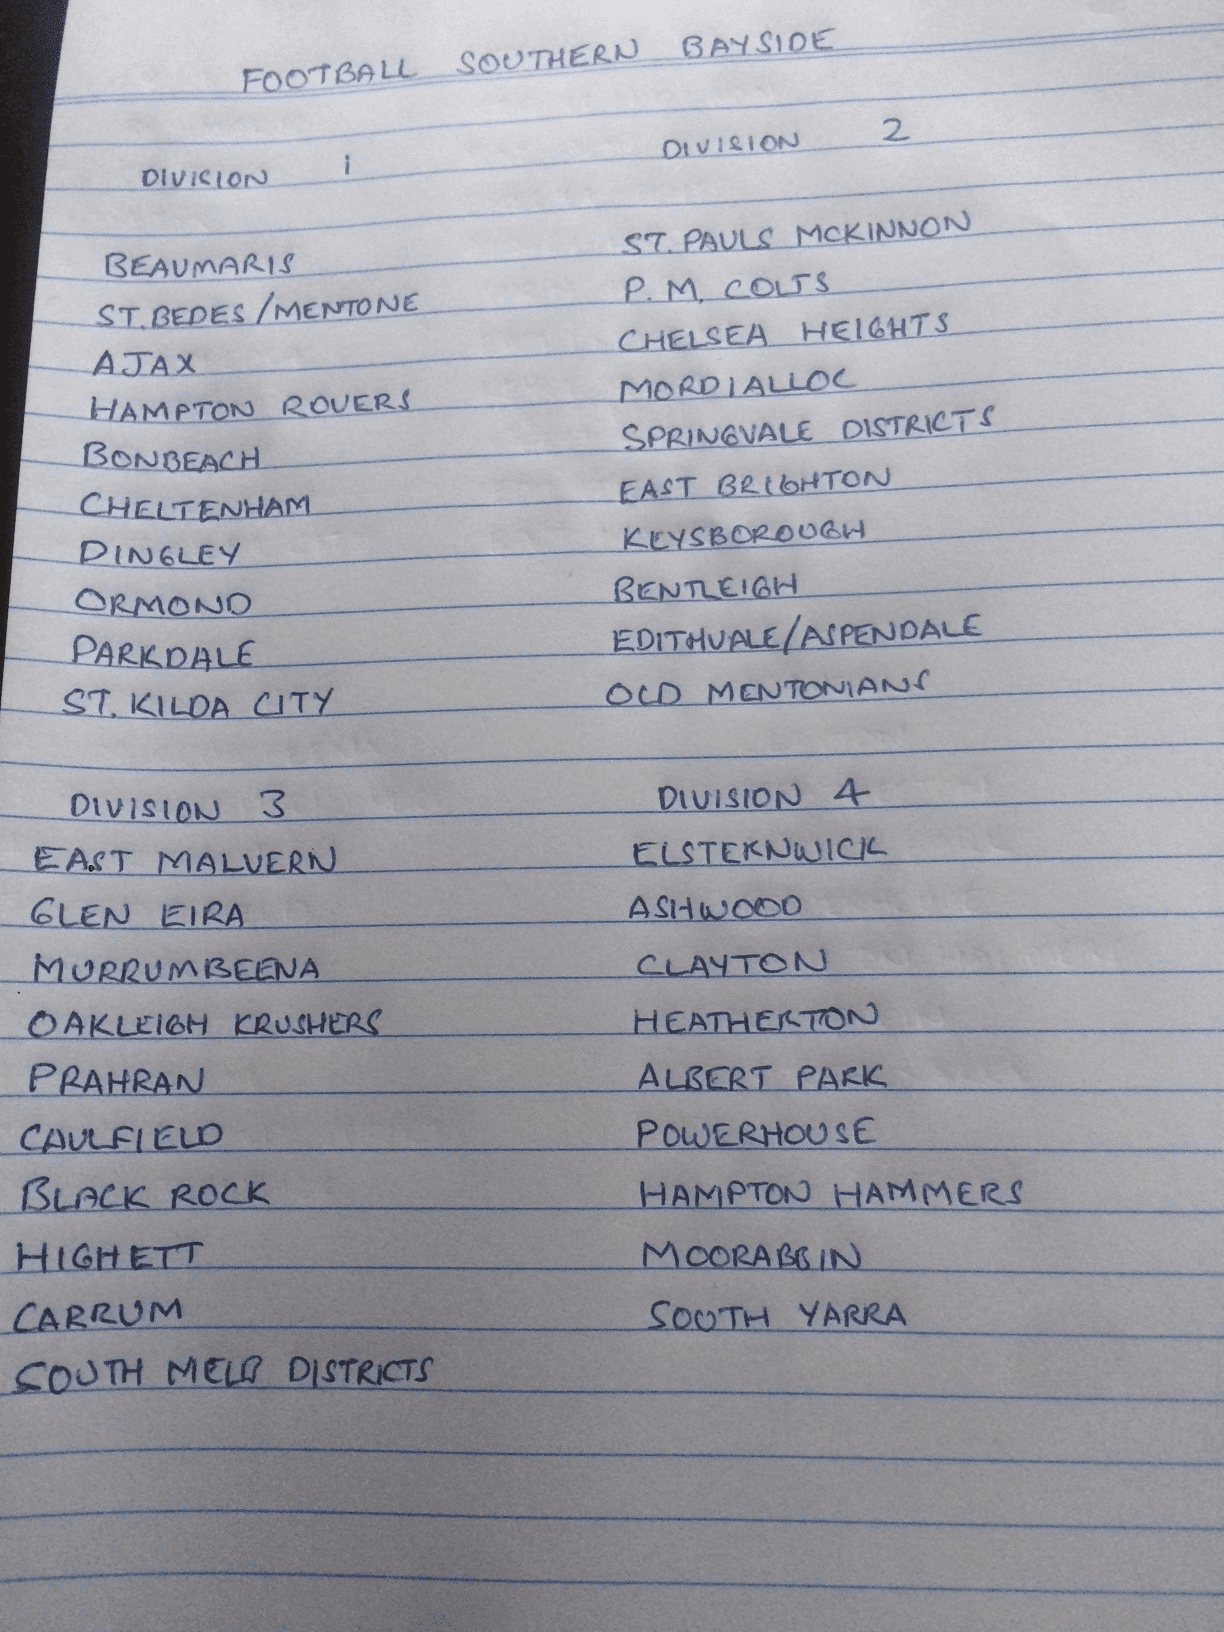 FOOTBALL SOUTHERN BAYSIDE
DIVISION 1
BEAUMARIS
ST. BEDES/MENTONE
AJAX
HAMPTON ROVERS
BONBEACH
CHELTENHAM
DINGLEY
ORMOND
PARKDALE
ST. KILDA CITY
DIVISION 2
ST. PAULS MCKINNON
P. M. COLTS
CHELSEA HEIGHTS
MORDIALLOC
SPRINGVALE DISTRICTS
EAST BRIGHTON
KEYSBOROUGH
BENTLEIGH
EDITHVALE/ASPENDALE
OLD MENTONIANS
DIVISION 3
EAST MALVERN
GLEN EIRA
MURRUMBEENA
OAKLEIGH KRUSHERS
PRAHRAN
CAULFIELD
BLACK ROCK
HIGHETT
CARRUM
SOUTH MELB DISTRICTS
DIVISION 4
ELSTERNWICK
ASHWOOD
CLAYTON
HEATHERTON
ALBERT PARK
POWERHOUSE
HAMPTON HAMMERS
MOORABBIN
SOUTH YARRA